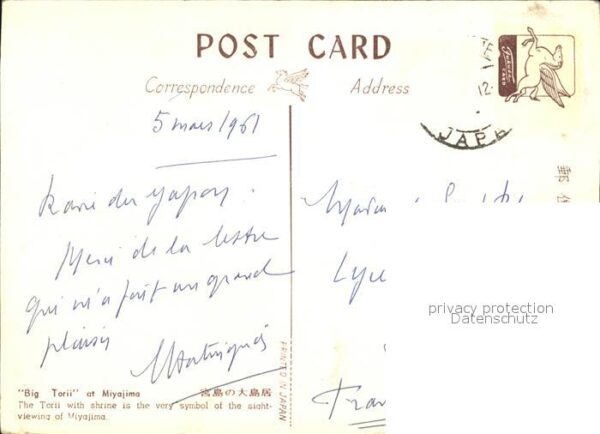 POST CARD
Correspondence
Address
5 mars 1961
Ravie du Japon.
Merci de la lettre
qui m'a fait un grand
plaisir
"Big Torii" at Miyajima 宮島の大鳥居
The Torii with shrine is the very symbol of the sight-
viewing of Miyajima.
PRINTED IN JAPAN
JAPA
12
郵
privacy protection
Datenschutz
Lyc
Fran